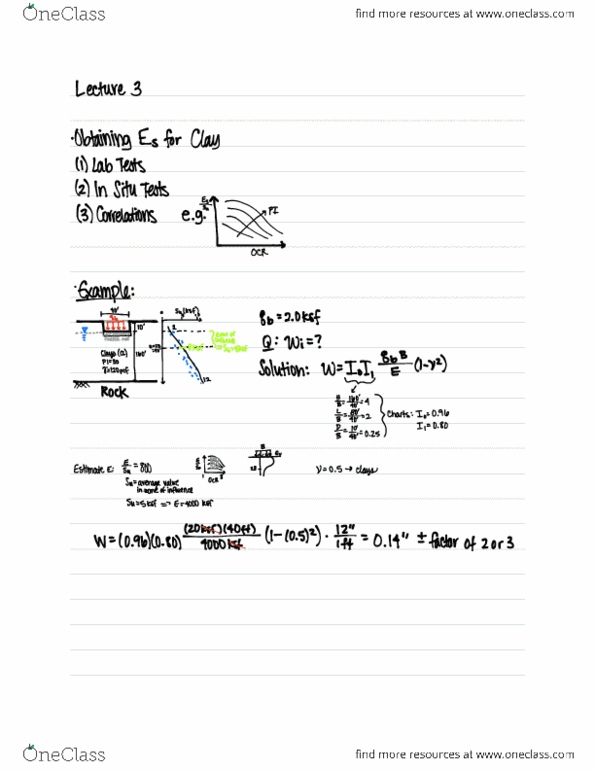 OneClass
find more resources at www.oneclass.com
Lecture 3
·Obtaining Es for Clay
(1) Lab Tests
(2) In Situ Tests
(3) Correlations e.g.
PI
OCR
·Example:
40'
Su(ksf)
10'
Clays (CL)
PI=30
γ=120pcf
160'
Rock
12
qb = 2.0 ksf
Q: Wi = ?
Solution: W = I₀I₁ qbB/E (1-ν²)
H/B = 160'/40' = 4
L/B = 80'/40' = 2
D/B = 10'/40' = 0.25
Charts: I₀ = 0.96
I₁ = 0.80
Estimate E: E/Su = 800
OCR
B
ν = 0.5 → clays
Su = average value
in zone of influence
Su = 5 ksf ⇒ E = 4000 ksf
W = (0.96)(0.80) (2.0 ksf)(40ft)/4000 ksf (1-(0.5)²) · 12"/1ft = 0.14" ± factor of 2 or 3
OneClass
find more resources at www.oneclass.com